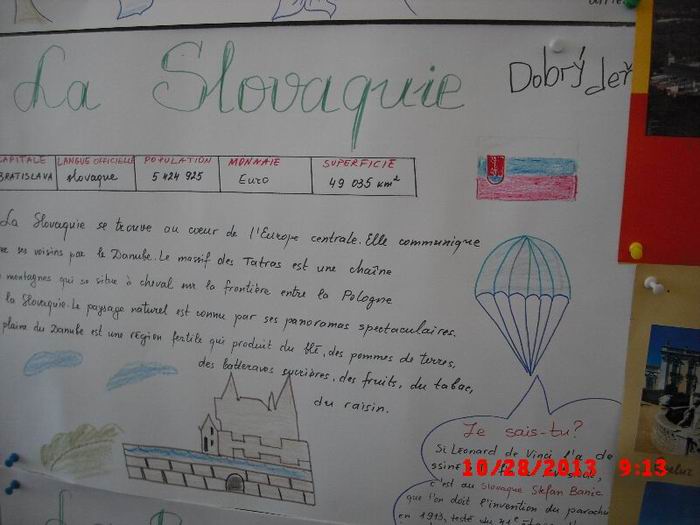 La Slovaquie
Dobrý deň
CAPITALE LANGUE OFFICIELLE POPULATION MONNAIE SUPERFICIE
BRATISLAVA slovaque 5 424 925 Euro 49 035 km²
La Slovaquie se trouve au cœur de l'Europe centrale. Elle communique
ses voisins par le Danube. Le massif des Tatras est une chaîne
montagnes qui se situe à cheval sur la frontière entre la Pologne
la Slovaquie. Le paysage naturel est connu par ses panoramas spectaculaires.
plaine du Danube est une région fertile qui produit du blé, des pommes de terres,
des batteraves sucrières, des fruits, du tabac,
du raisin.
Je sais-tu?
Si Léonard de Vinci l'a de
ssiné
c'est au slovaque Stefan Banic
que l'on doit l'invention du parachu
en 1913, testé du
10/28/2013 9:13